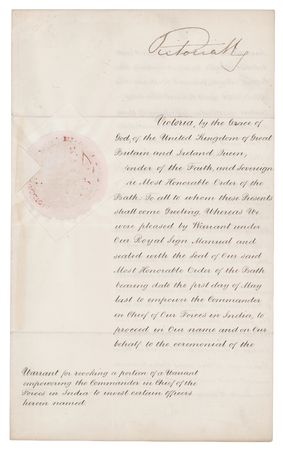 Victoria R
Victoria, by the Grace of
God, of the United Kingdom of Great
Britain and Ireland Queen,
ender of the Faith, and Sovereign
e Most Honorable Order of the
Bath. To all to whom these Presents
shall come Greeting. Whereas We
were pleased by Warrant under
Our Royal Sign Manual and
sealed with the Seal of Our said
Most Honorable Order of the Bath
bearing date the first day of May
last to empower the Commander
in Chief of Our Forces in India, to
proceed in Our name and on Our
behalf to the ceremonial of the
Warrant for revoking a portion of a Warrant
empowering the Commander in Chief of the
Forces in India to invest certain officers
herein named.